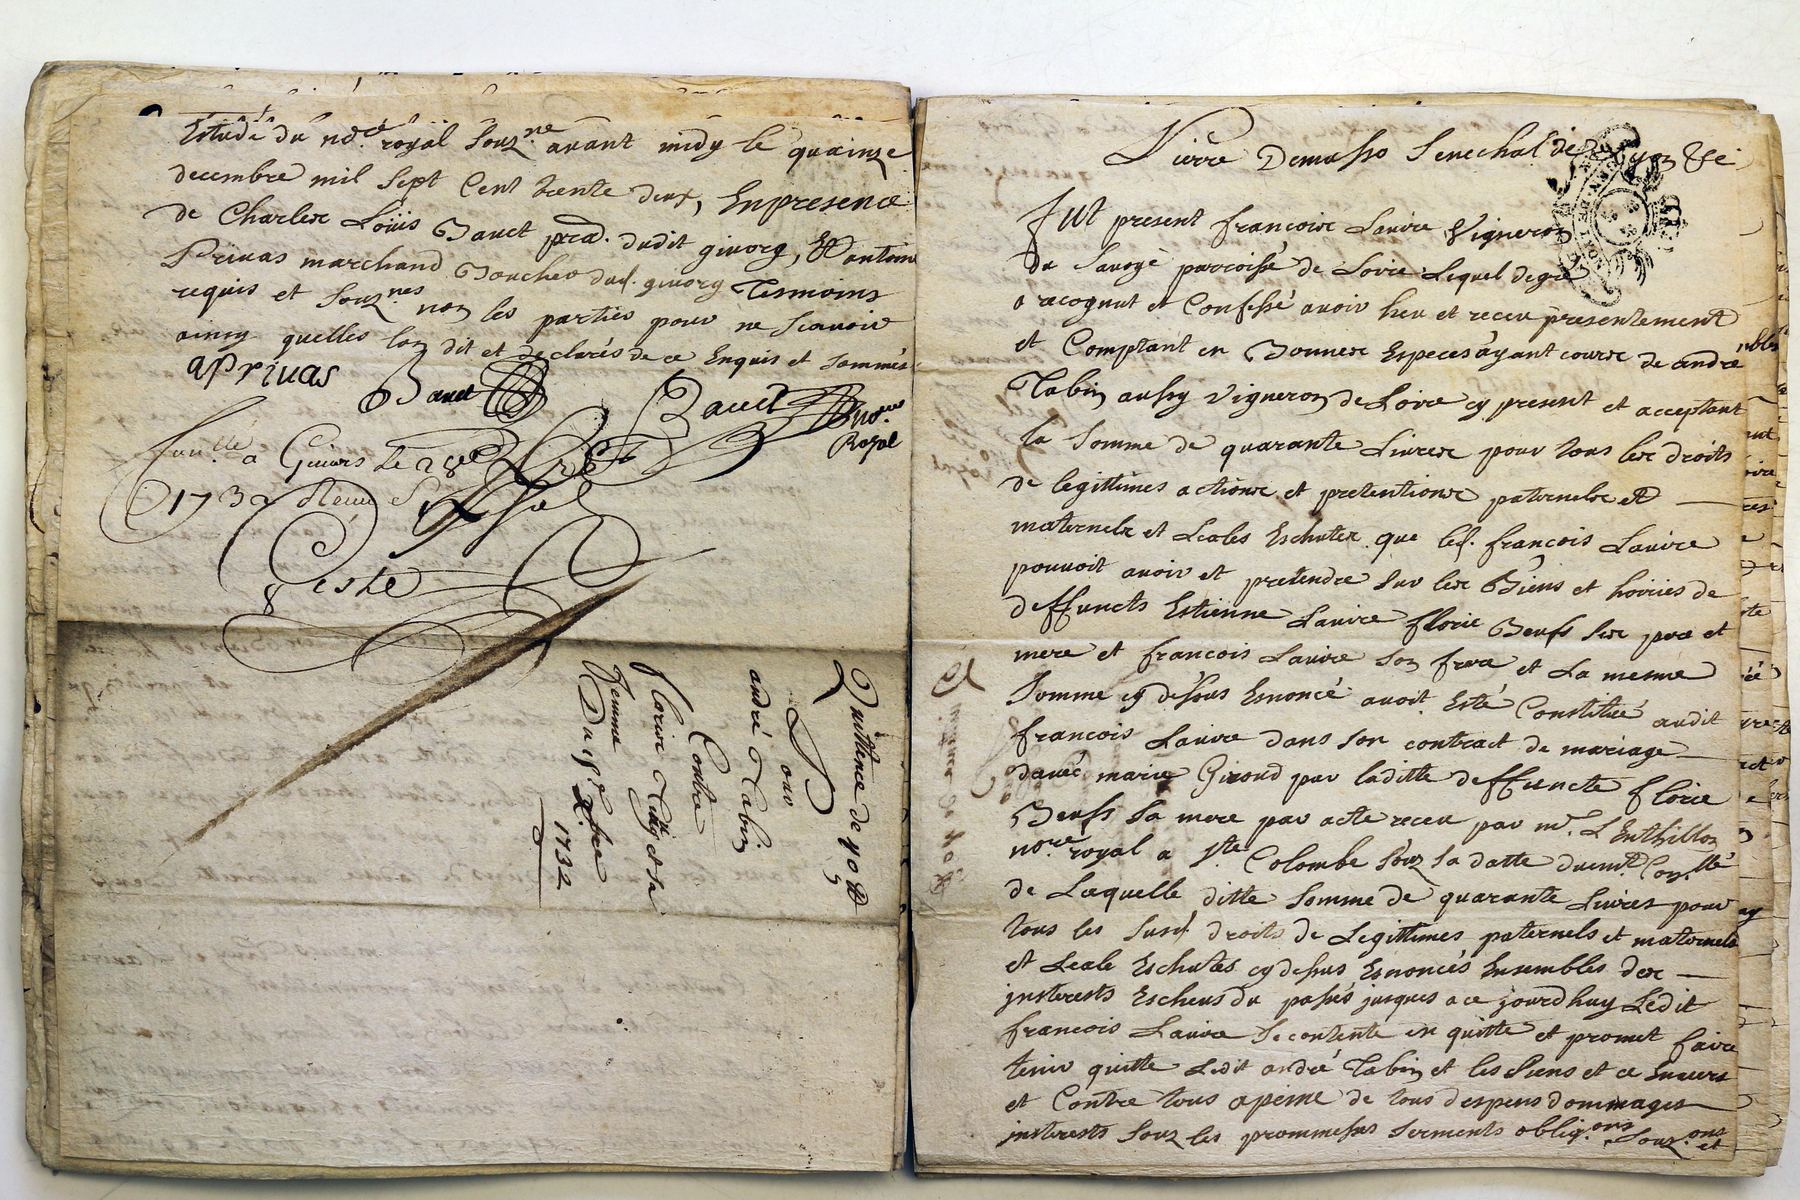 Estude du no.re royal souz.ne avant midy le quainze
decembre mil sept cent trente deux, En presence
de Charles Loüis Bauct prad. dudit givorg, Et antoine
Privas marchand Boucher dud. givorg Tesmoins
requis et souz.nes non les parties pour ne scavoir
ainsy quelles lon dit et declarés de ce Enquis et sommés
aprivas Bauct Bauct no.re
Royal
Con.llé a Givors le 28e
1732 Receu
Reste
Quittence de 40 ₶
Pour
andré Tabin
Contre
florise et sa
femme
Du 15e Xbre
1732
Pierre Demasso Senechal de Lyon
Fut present francoise Lavire Vigneron
du Savoyé parroisse de Loire Lequel de gre
a racognut et Confessé avoir heu et receu presentement
et Comptant en Bonnese Especes ayant course de andré
Tabin aussy vigneron de Loire cy present et acceptant
la somme de quarante Livrese pour tous lese droits
de legittimes actionse et pretentionse paternelse et
maternelse et Leales Eschutes que led. francois Lavire
pouvoit avoir et pretendre sur lese Biens et hoiries de
deffuncts Estienne Lavire florie Beufs ses pere et
mere et francois Lavire son frere et La mesme
somme cy dessus Enoncé avoit Esté Constitué audit
francois Lavire dans son contract de mariage
davec marie Giroud par laditte deffuncte florie
Beufs sa mere par acte receu par m.e L Enthillon
no.re royal a S.te Colombe souz sa datte duemt Con.llé
de Laquelle ditte somme de quarante Livres pour
tous les susd. droits de Legittimes paternels et maternels
et Leale Eschutes cy dessus Enoncés Ensembles dese
jnsterests Escheus du passés jusques a ce jourdhuy Ledit
francois Lavire se contente en quitte et promet faire
tenir quitte Ledit andré Tabin et les siens et ce Envers
et Contre tous a peine de tous despens dommages
jnsterests souz les prommesses serments oblig.ons souz.ons et